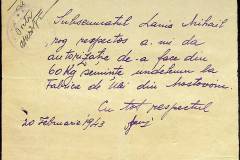 Subsemnatul Zanis Mihail
rog respectos a-mi da
autorizație de-a face din
60 Kg seminte undelemn la
Fabrica de Ulei din Mostovoni.
Cu tot respectul
20 Februarie 1943